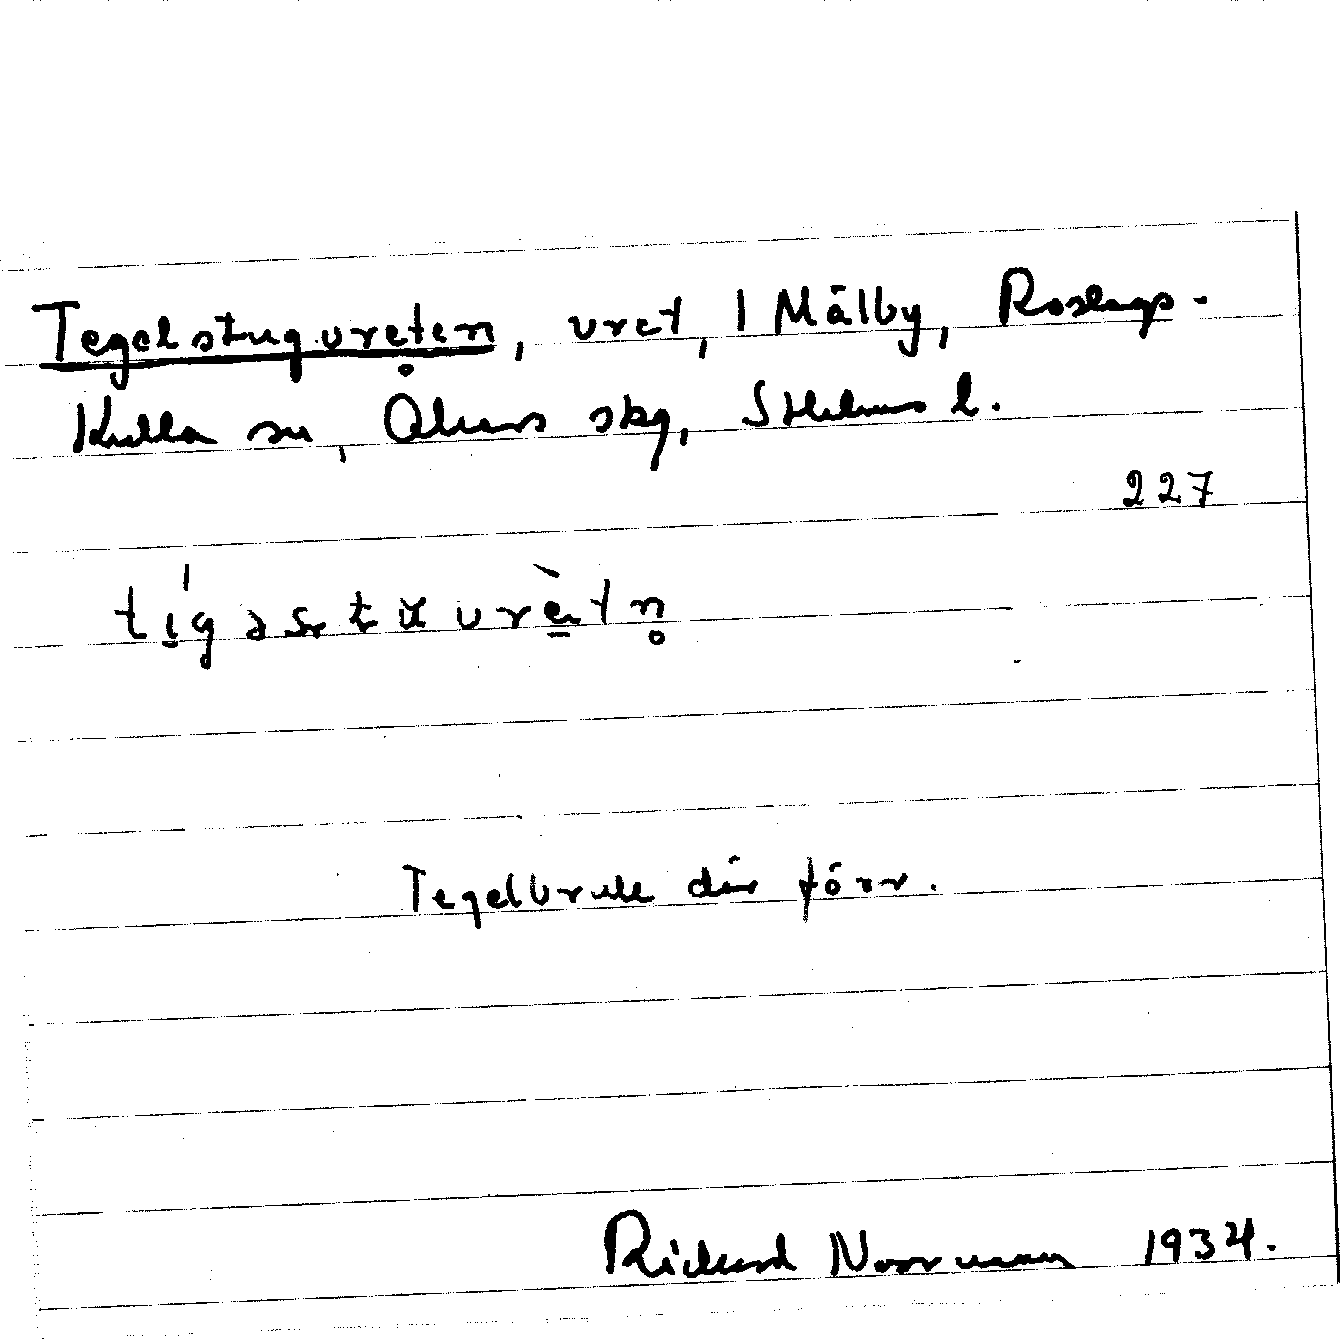 Tegelstuguvreten, vret, I Målby, Roslags-
Kulla sn, Åkers skg, Sthlms l.
227
tígəstuvrètn̥
Tegelbruk där förr.
Rickard Noorman 1934.